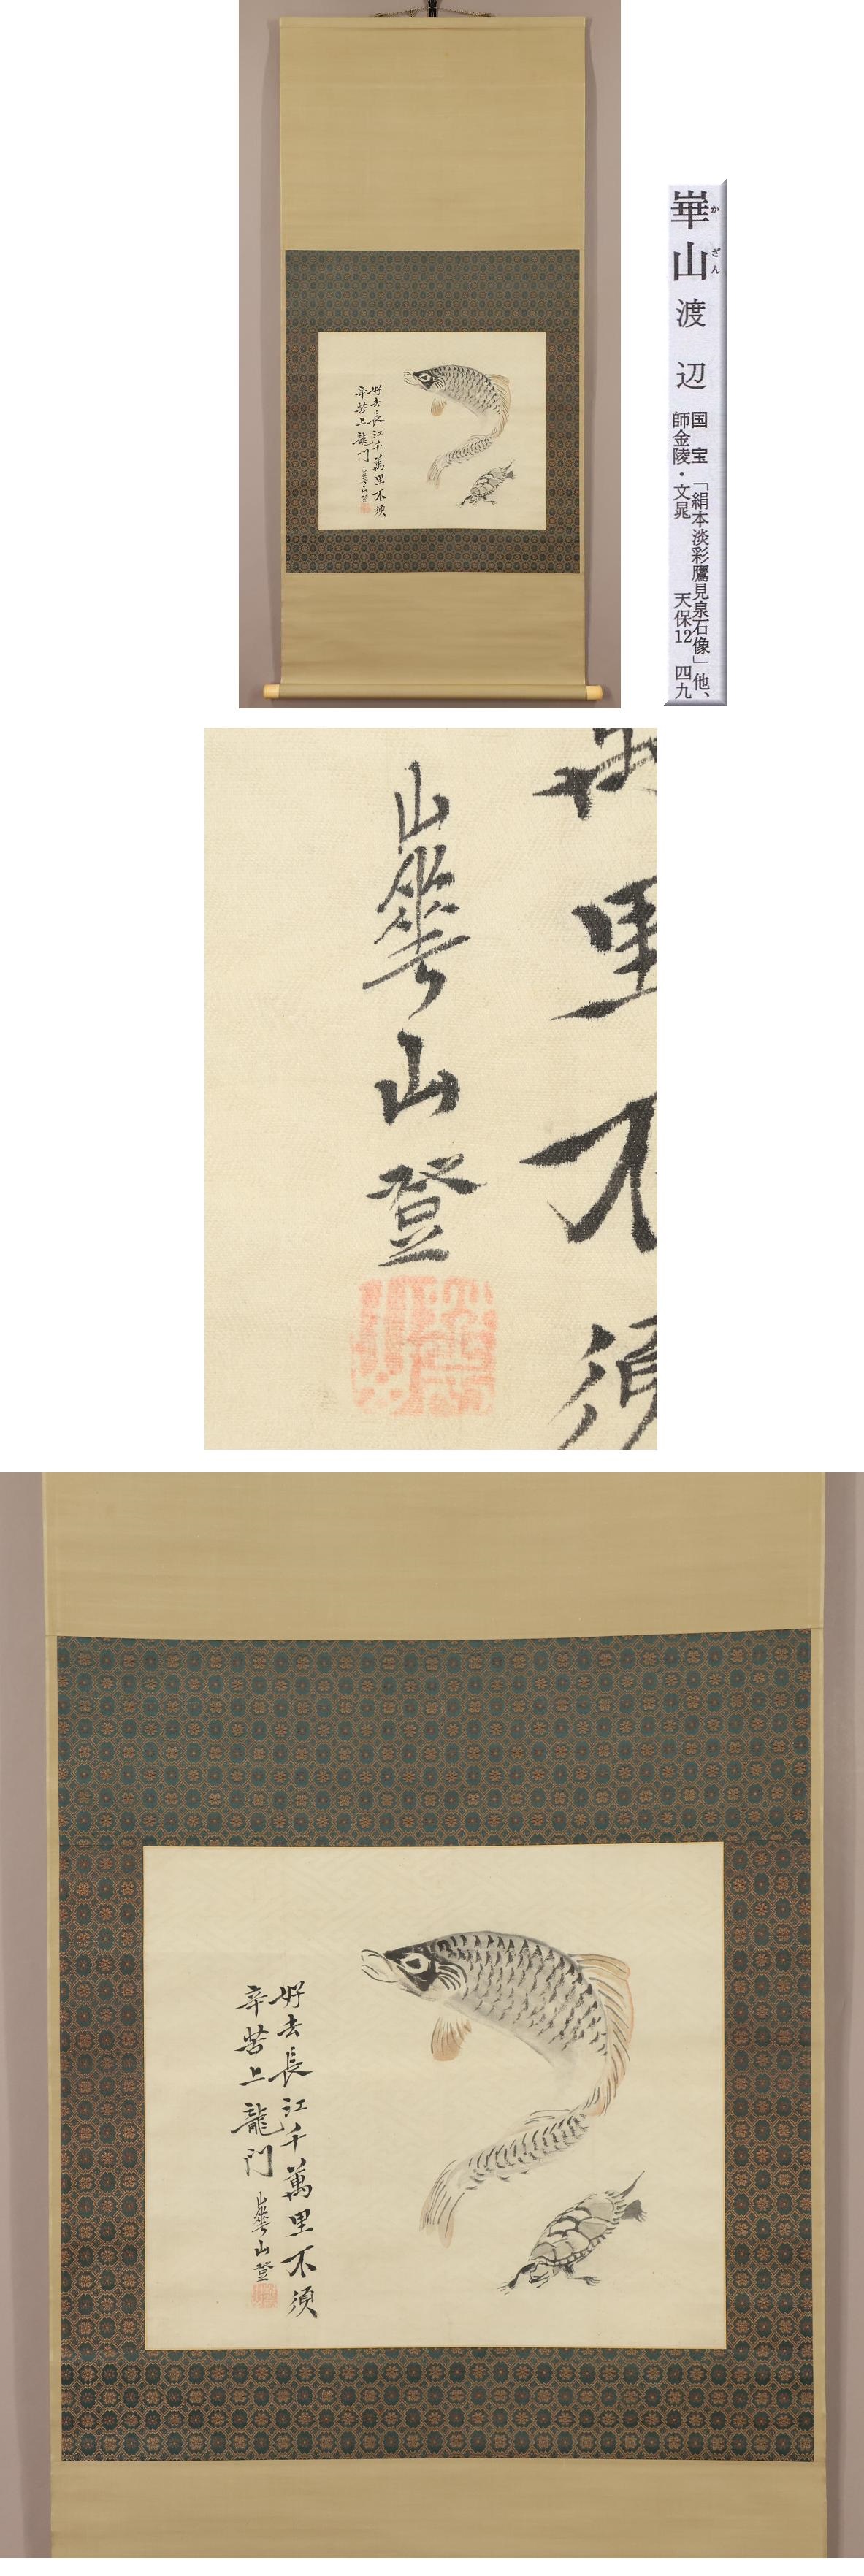 好去長江千萬里不須
辛苦上龍門
崋山登
崋山 渡辺
かざん
国宝「絹本淡彩鷹見泉石像」他、
師金陵・文晁 天保12 四九
崋山登
里不須
好去長江千萬里不須
辛苦上龍門
崋山登